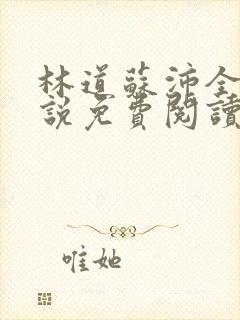 林道蘇沛全
說免費閱讀
唯她